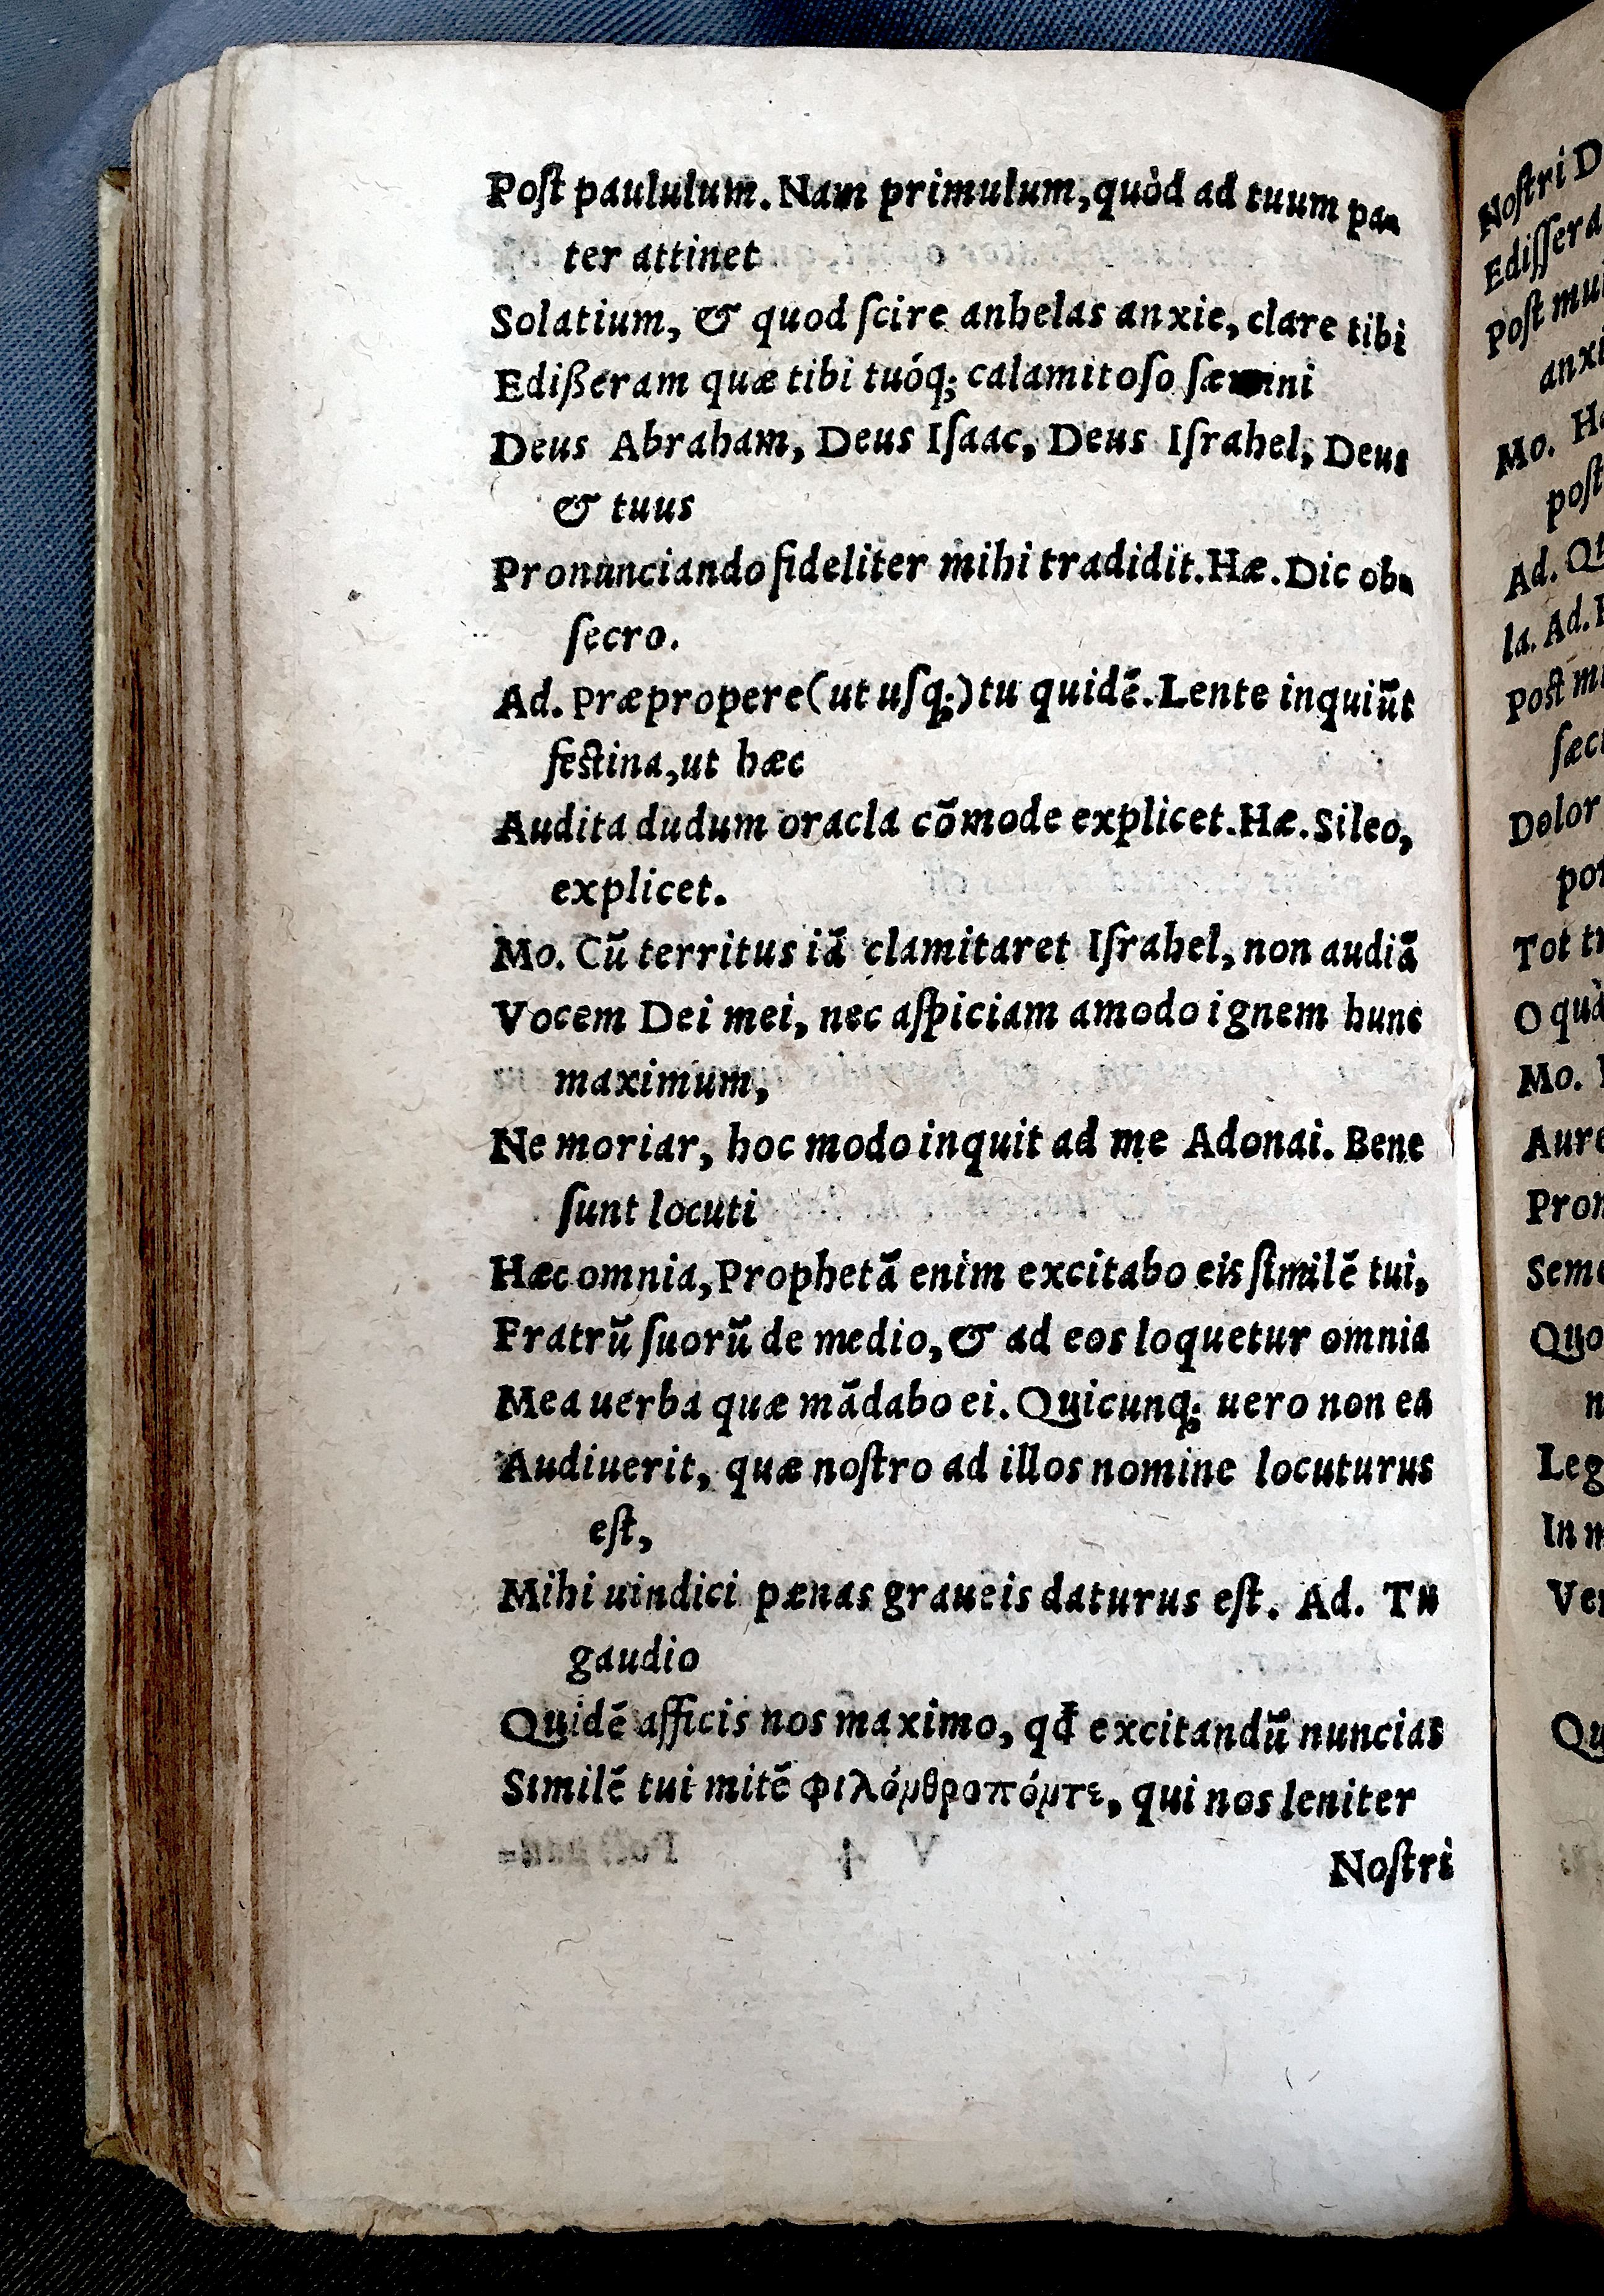 Poſt paululum. Nam primulum, quòd ad tuum pa-
ter attinet
Solatium, & quod ſcire anhelas anxie, clare tibi
Edißeram quæ tibi tuóq; calamitoſo
Deus Abraham, Deus Iſaac, Deus Iſrahel, Deus
& tuus
Pronunciando fideliter mihi tradidit. Hæ. Dic ob-
ſecro.
Ad. Præpropere (ut uſq;) tu quidē. Lente inquiūt
feſtina, ut hæc
Audita dudum oracla cōmode explicet. Hæ. Sileo,
explicet.
Mo. Cū territus iā clamitaret Iſrahel, non audiā
Vocem Dei mei, nec aſpiciam amodo ignem hunc
maximum,
Ne moriar, hoc modo inquit ad me Adonai. Bene
ſunt locuti
Hæc omnia, Prophetā enim excitabo eis ſimilē tui,
Fratrū ſuorū de medio, & ad eos loquetur omnia
Mea uerba quæ mādabo ei. Quicunq; uero non ea
Audiuerit, quæ noſtro ad illos nomine locuturus
eſt,
Mihi uindici pænas graueis daturus eſt. Ad. Tu
gaudio
Quidē afficis nos maximo, qđ excitandū nuncias
Similē tui mitē , qui nos leniter
Noſtri
Noſtri D
Ediſſera
Poſt mul
anxi
Mo. Hæ
poſt
Ad. Qu
la. Ad.
Poſt mu
ſæcu
Dolor
po
Tot tr
O quā
Mo.
Aure
Pron
Seme
Quo
n
Leg
In m
Ver
Qu